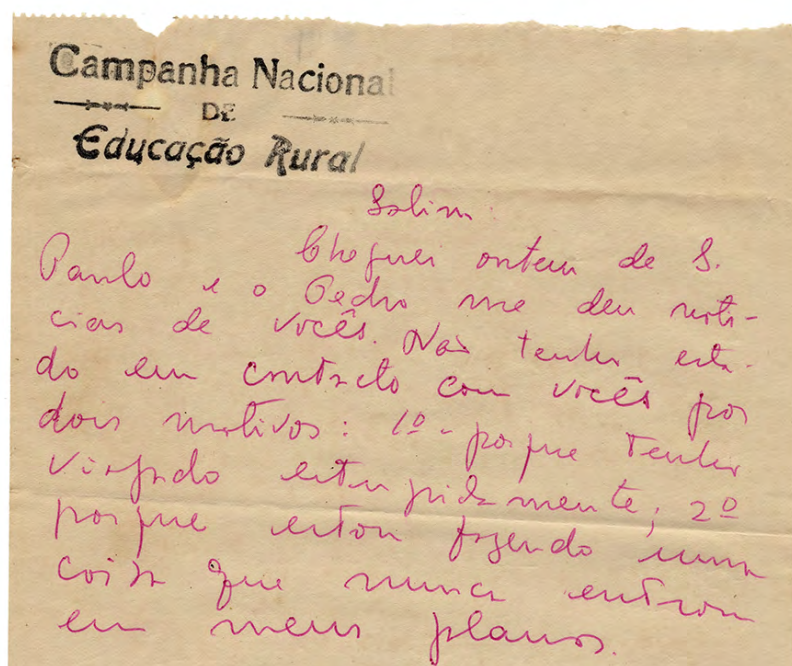 Campanha Nacional
DE
Educação Rural
Salim:
Cheguei ontem de S.
Paulo e o Pedro me deu notí-
cias de vocês. Não tenho esta-
do em contacto com vocês por
dois motivos: 1º - porque tenho
viajado estupidamente; 2º
porque estou fazendo uma
coisa que nunca entrou
em meus planos.